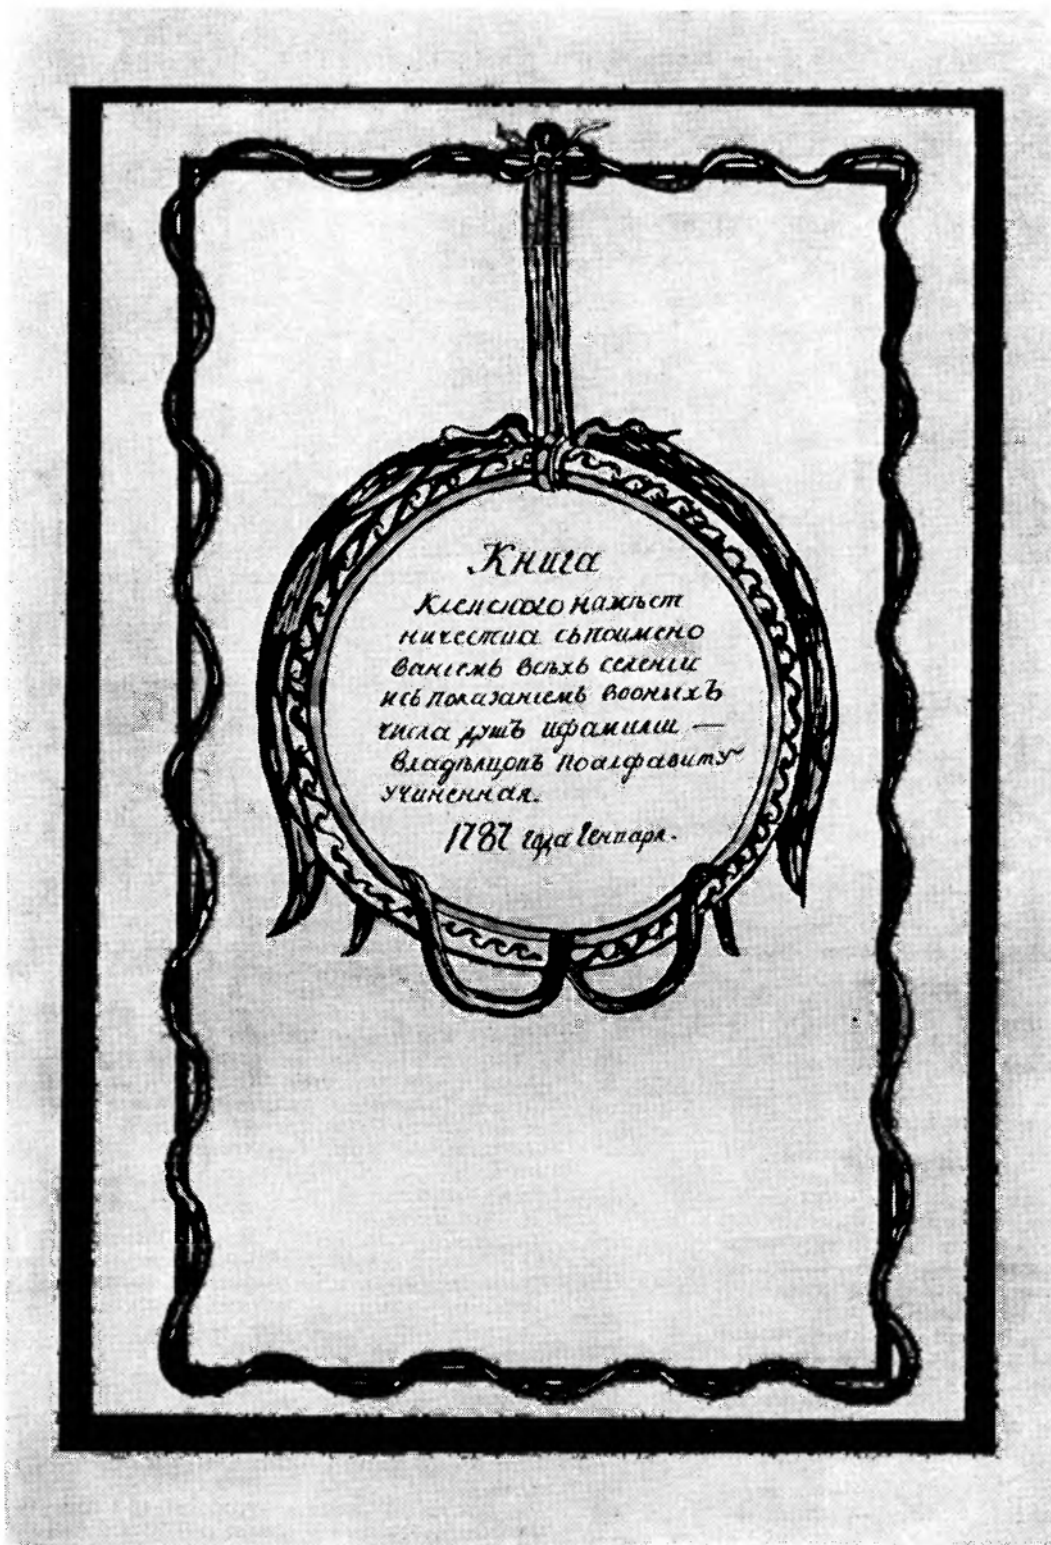 Книга
Кіевского намѣст
ничества съпоимено
ваніемъ всѣхъ селеніи
исъ показаніемъ вооныхъ
числа душъ ифамиліи —
владѣлцовъ поалфавиту
учиненная.
1787 года Генваря.